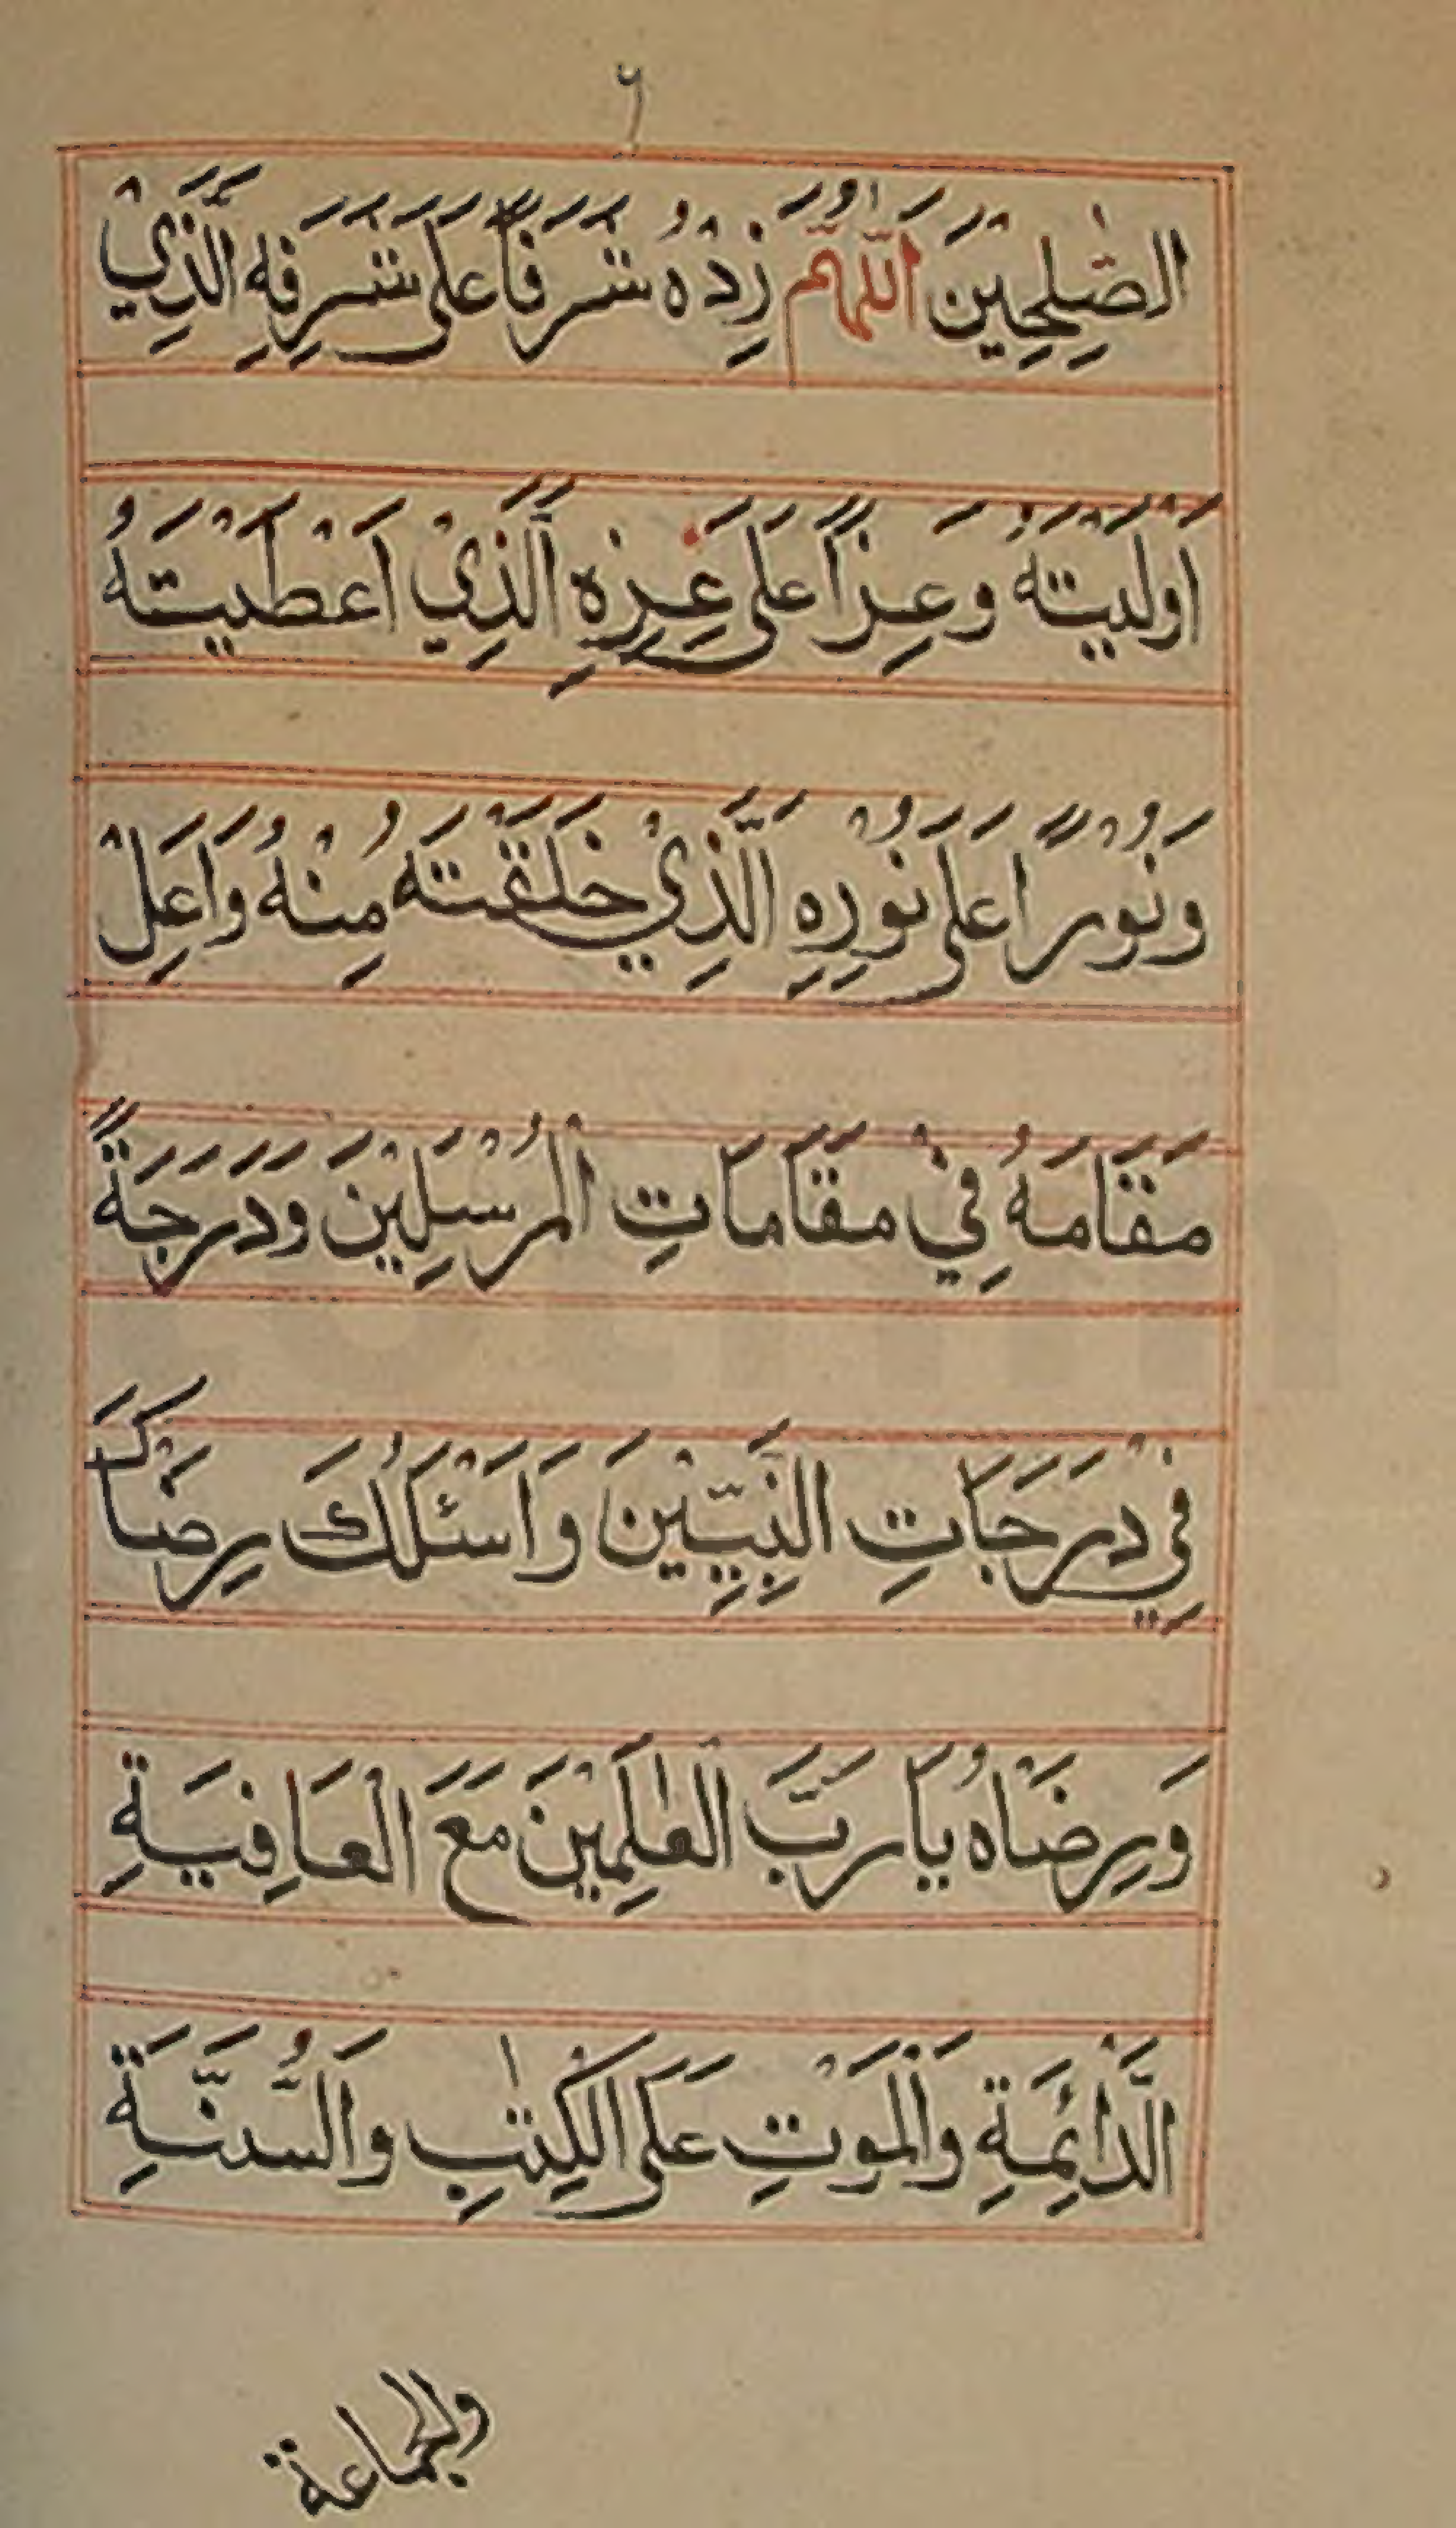 ۶
الصّٰلِحِيْنَ اَللّٰهُمَّ زِدْهُ شَرَفًا عَلٰى شَرَفِهِ الَّذِيْ
اَوْلَيْتَهُ وَعِزًّا عَلٰى عِزِّهِ الَّذِيْ اَعْطَيْتَهُ
وَنُوْرًا عَلٰى نُوْرِهِ الَّذِيْ خَلَقْتَهُ مِنْهُ وَاَعْلِ
مَقَامَهُ فِيْ مَقَامَاتِ الْمُرْسَلِيْنَ وَدَرَجَةً
فِيْ دَرَجَاتِ النَّبِيِّيْنَ وَاَسْئَلُكَ رِضَاكَ
وَرِضَاهُ يَا رَبَّ الْعٰلَمِيْنَ مَعَ الْعَافِيَةِ
الدَّائِمَةِ وَالْمَوْتِ عَلَى الْكِتٰبِ وَالسُّنَّةِ
والجماعة